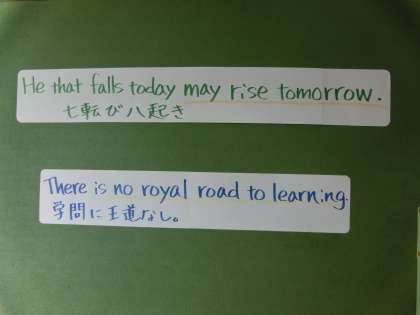 He that falls today may rise tomorrow.
七転び八起き
There is no royal road to learning.
学問に王道なし。